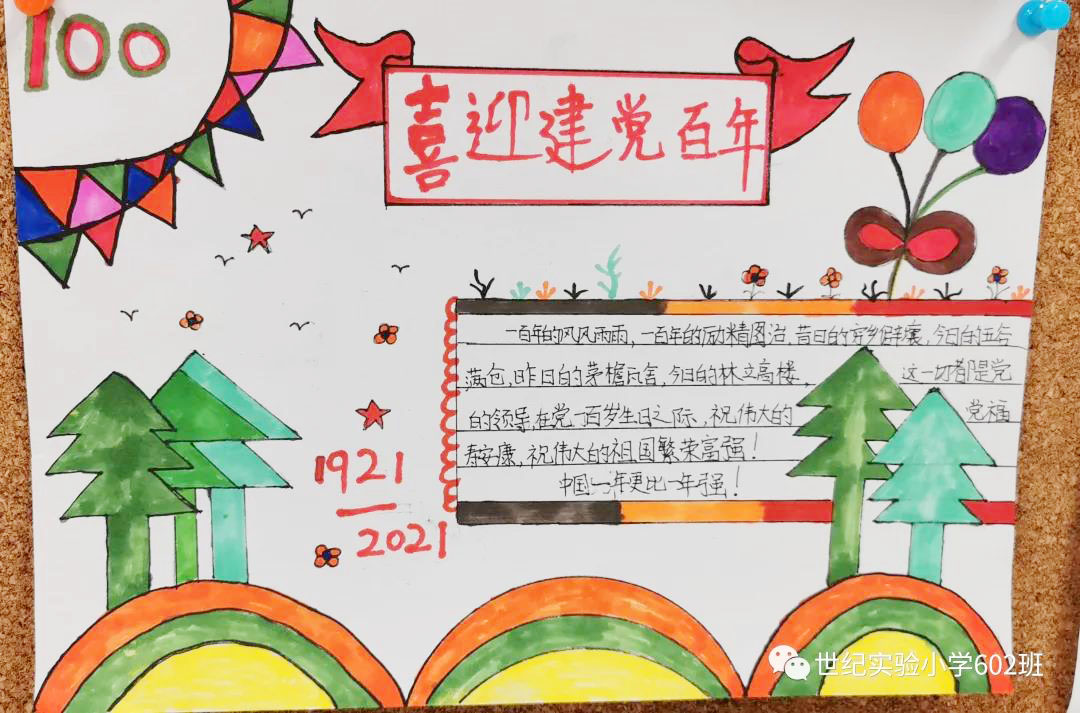 100
喜迎建党百年
一百年的风风雨雨，一百年的励精图治，昔日的穷乡僻壤，今日的五谷
满仓，昨日的茅檐瓦舍，今日的林立高楼，这一切都是党
的领导，在党一百岁生日之际，祝伟大的党福
寿安康，祝伟大的祖国繁荣富强！
中国一年更比一年强！
1921
2021
世纪实验小学602班